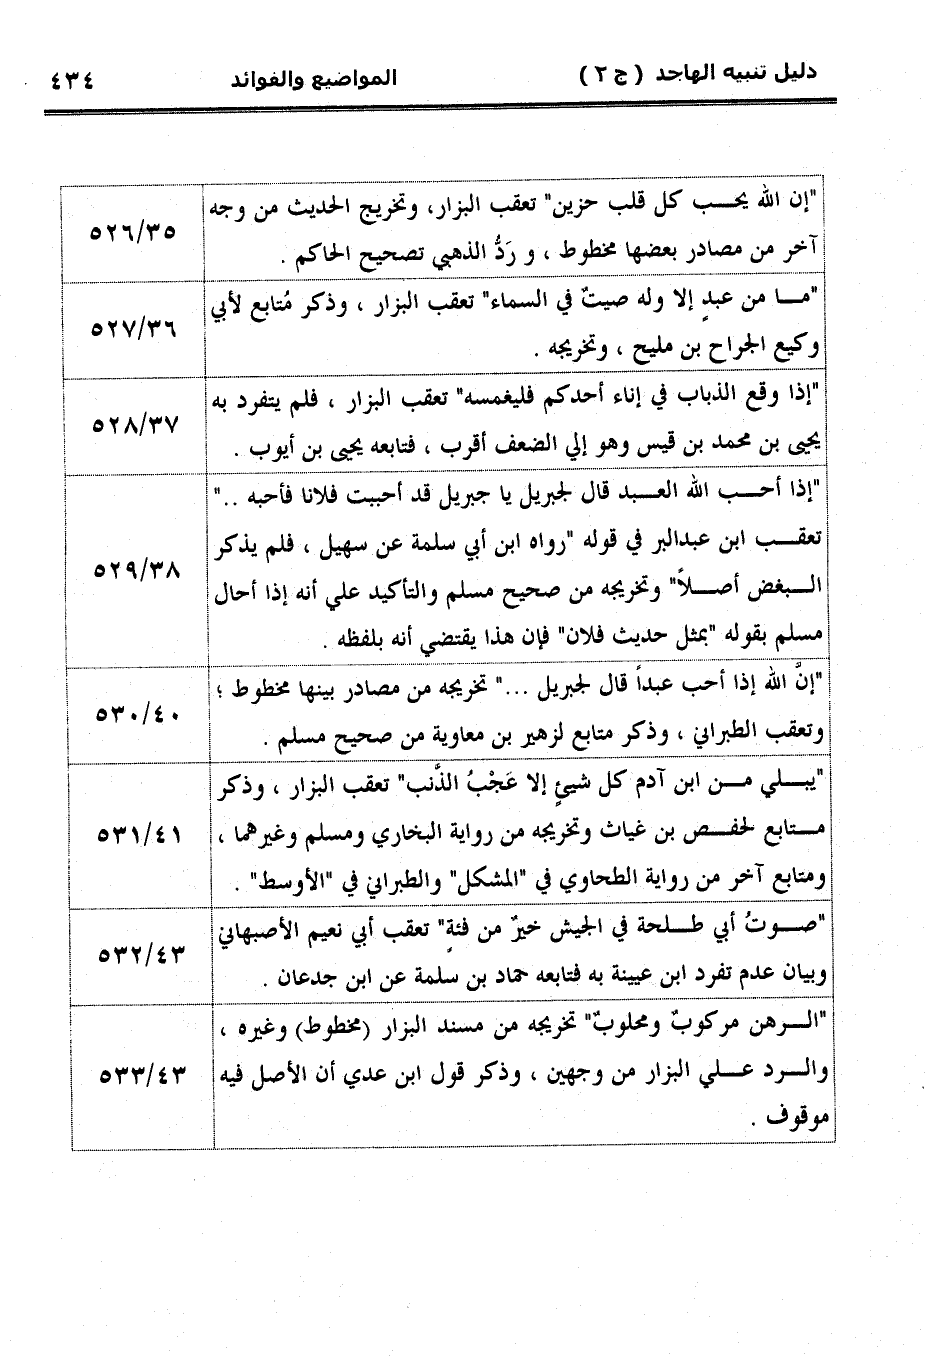 دليل تنبيه الهاجد ( ج ٢ ) المواضيع والفوائد ٤٣٤
"إن الله يحب كل قلب حزين" تعقب البزار، وتخريج الحديث من وجه
آخر من مصادر بعضها مخطوط ، و رَدُّ الذهبي تصحيح الحاكم .
٥٢٦/٣٥
"ما من عبدٍ إلا وله صيتٌ في السماء" تعقب البزار ، وذكر مُتابع لأبي
وكيع الجراح بن مليح ، وتخريجه .
٥٢٧/٣٦
"إذا وقع الذباب في إناء أحدكم فليغمسه" تعقب البزار ، فلم يتفرد به
يحيى بن محمد بن قيس وهو إلي الضعف أقرب ، فتابعه يحيى بن أيوب .
٥٢٨/٣٧
"إذا أحب الله العبد قال لجبريل يا جبريل قد أحببت فلانا فأحبه .."
تعقب ابن عبدالبر في قوله "رواه ابن أبي سلمة عن سهيل ، فلم يذكر
البغض أصلاً" وتخريجه من صحيح مسلم والتأكيد علي أنه إذا أحال
مسلم بقوله "بمثل حديث فلان" فإن هذا يقتضي أنه بلفظه .
٥٢٩/٣٨
"إنَّ الله إذا أحب عبداً قال لجبريل ..." تخريجه من مصادر بينها مخطوط ؛
وتعقب الطبراني ، وذكر متابع لزهير بن معاوية من صحيح مسلم .
٥٣٠/٤٠
"يبلي من ابن آدم كل شيئٍ إلا عَجْبُ الذَّنب" تعقب البزار ، وذكر
متابع لحفص بن غياث وتخريجه من رواية البخاري ومسلم وغيرهما ،
ومتابع آخر من رواية الطحاوي في "المشكل" والطبراني في "الأوسط" .
٥٣١/٤١
"صوتُ أبي طلحة في الجيش خيرٌ من فئةٍ" تعقب أبي نعيم الأصبهاني
وبيان عدم تفرد ابن عيينة به فتابعه حماد بن سلمة عن ابن جدعان .
٥٣٢/٤٣
"الرهن مركوبٌ ومحلوبٌ" تخريجه من مسند البزار (مخطوط) وغيره ،
والرد علي البزار من وجهين ، وذكر قول ابن عدي أن الأصل فيه
موقوف .
٥٣٣/٤٣